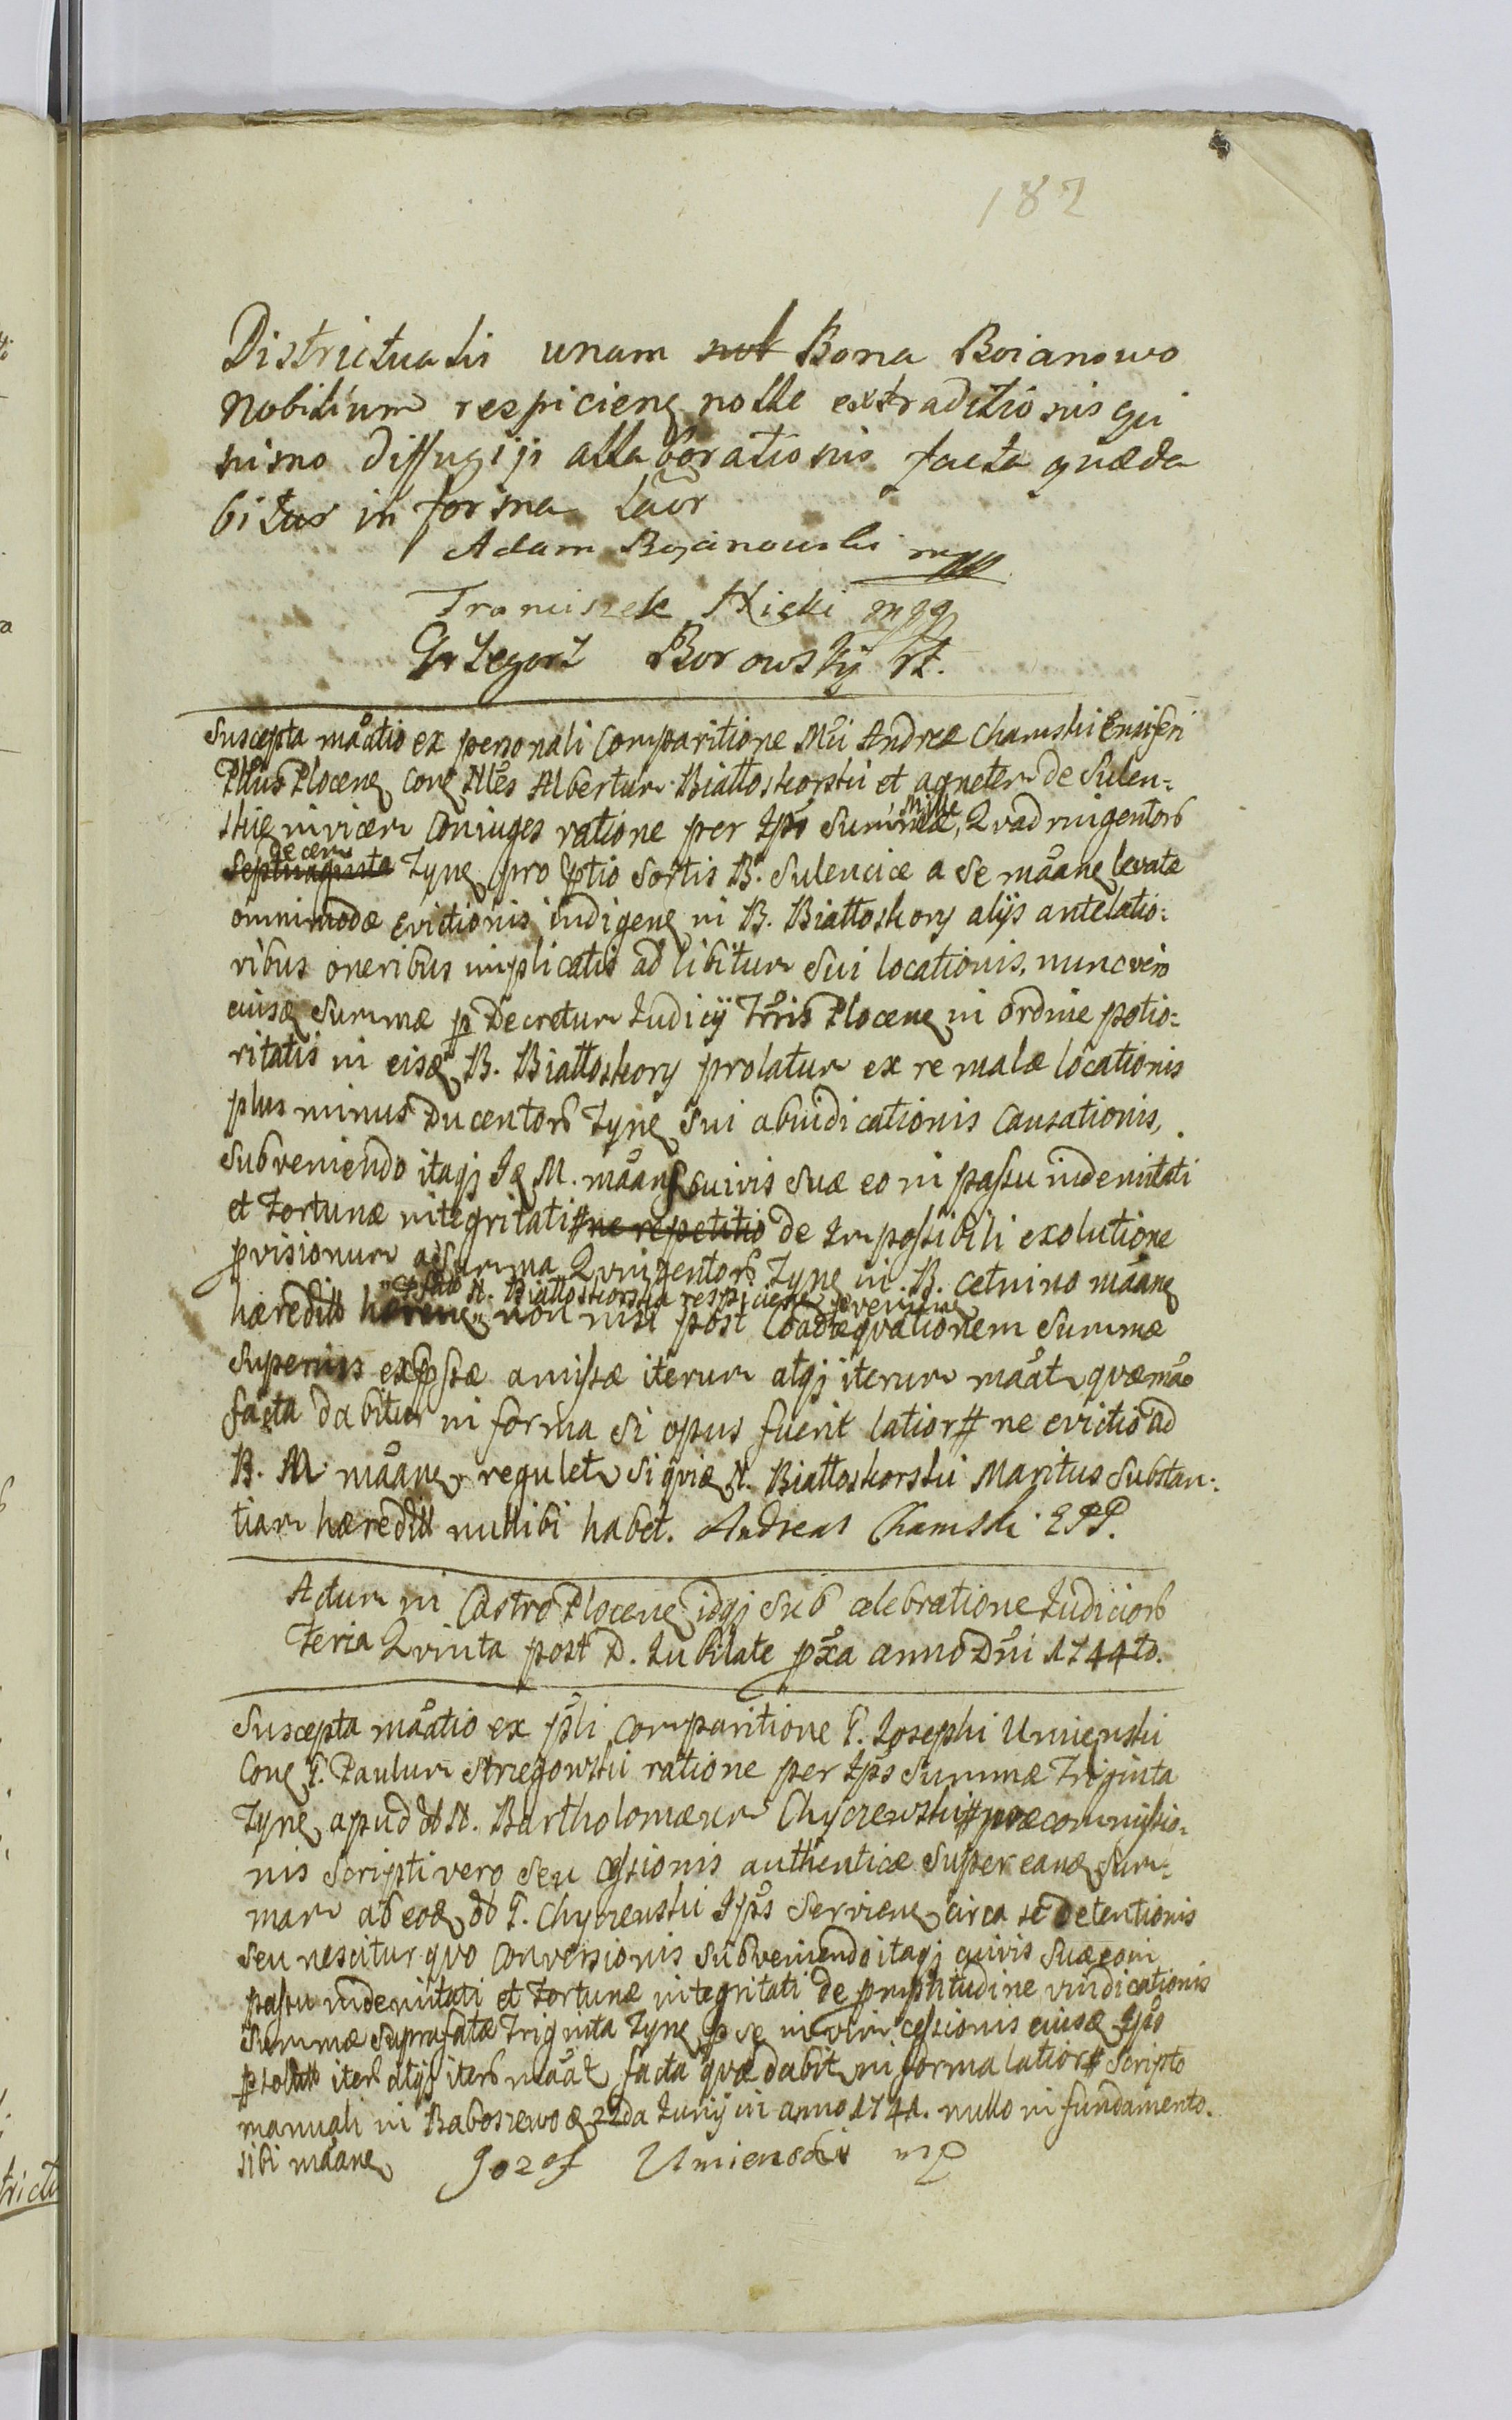 182
Districtualis unam not Bona Boianowo
Nobilium respicieng nolle extraditionis qui
nimo diffugiji allaborationis facta quæda
bitur in forma laõr
Adam Boianowski mpp
Franciszek Nicki mpp
Grzegorz Borowskÿ Rt.
Suscepta mãatio ex personali Comparitione Mci Andreæ Chamski Ensiferi
Pttus Plocen Con Mcos Albertum Białłoskorski et agnetem de Sulen-
skie invicem Coniuges ratione per Ips Summæ Mille, Quadringentorb
decem Septuaginta Tyn pro ptio Sortis B. Sulencice a Se mãan levatæ
omnimodæ evictionis indigen in B. Białłoskory alijs antelatio-
ribus oneribus implicatis ad libitum Sui locationis, nunc vero
eiusd Summæ p Decretum Iudicÿ Trris Plocen in ordine potio-
ritatis in eisd B. Białłoskory prolatum ex re malæ locationis
plus minus Ducentorb Tyn Sui abiudicationis Causationis,
Subveniendo itaqj Id M. mãans cuivis Suæ eo in passu indemnitati
et Fortunæ integritati # ne repetitio de Impossibili exolutione
pvisionum a Summa Quingentorb Tyn in B. Cetnino mãan
hæredittt hæren N. Białłoskorska respicien non nisi post Coadæquationem Summæ
Superius expssæ amissæ iterum atqj iterum mãat quæ mão
facta dabitur in forma Si opus fuerit latior # ne evictio ad
B. M mãan regulet Si quid N. Białłoskorski Maritus Substan-
tiam hæredittt nullibi habet. Andreas Chamski EPP.
Actum in Castro Plocen idqj Sub celebratione Iudiciorb
Feria Quinta post D. Iubilate pxa anno Dni 1744to.
Suscepta mãatio ex psli Comparitione G. Iosephi Umienski
Con G. Paulum Strzegowski ratione per Ips Summæ Triginta
Tyn apud N. Bartholomæum Chyczewski # præcommissio-
nis Scripti vero Seu Cessionis authenticæ Super eand Sum-
mam ab eod G. Chyczewski Ips Servien circa se Detentionis
Seu nescitur quo Conversionis Subveniendo itaqj cuivis Suæ eo in
passu indemnitati et Fortunæ integritati de pmptitudine vindicationis
Summæ Suprafatæ Triginta Tyn p Se in vim cessionis eiusd Ips
iterb atqj iterb mãat facta quæ dabit in forma latior # Scripto
manuali in Baboszewo d 22da Iunij in anno 1741. nullo in fundamento.
Sibi mãan Jozef Umienski mp